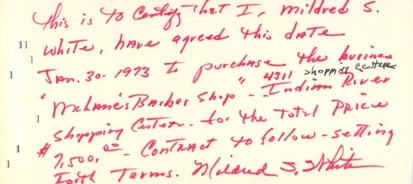 This is to Certify that I, Mildred S.
White, have agreed this date
Jan. 30 - 1973 to purchase the business
shopping center
"McLane's Barber Shop - " 4311 Indian River
Shopping Center - for the Total Price
$7,500.00 - Contract to follow - setting
forth Terms. Mildred S. White